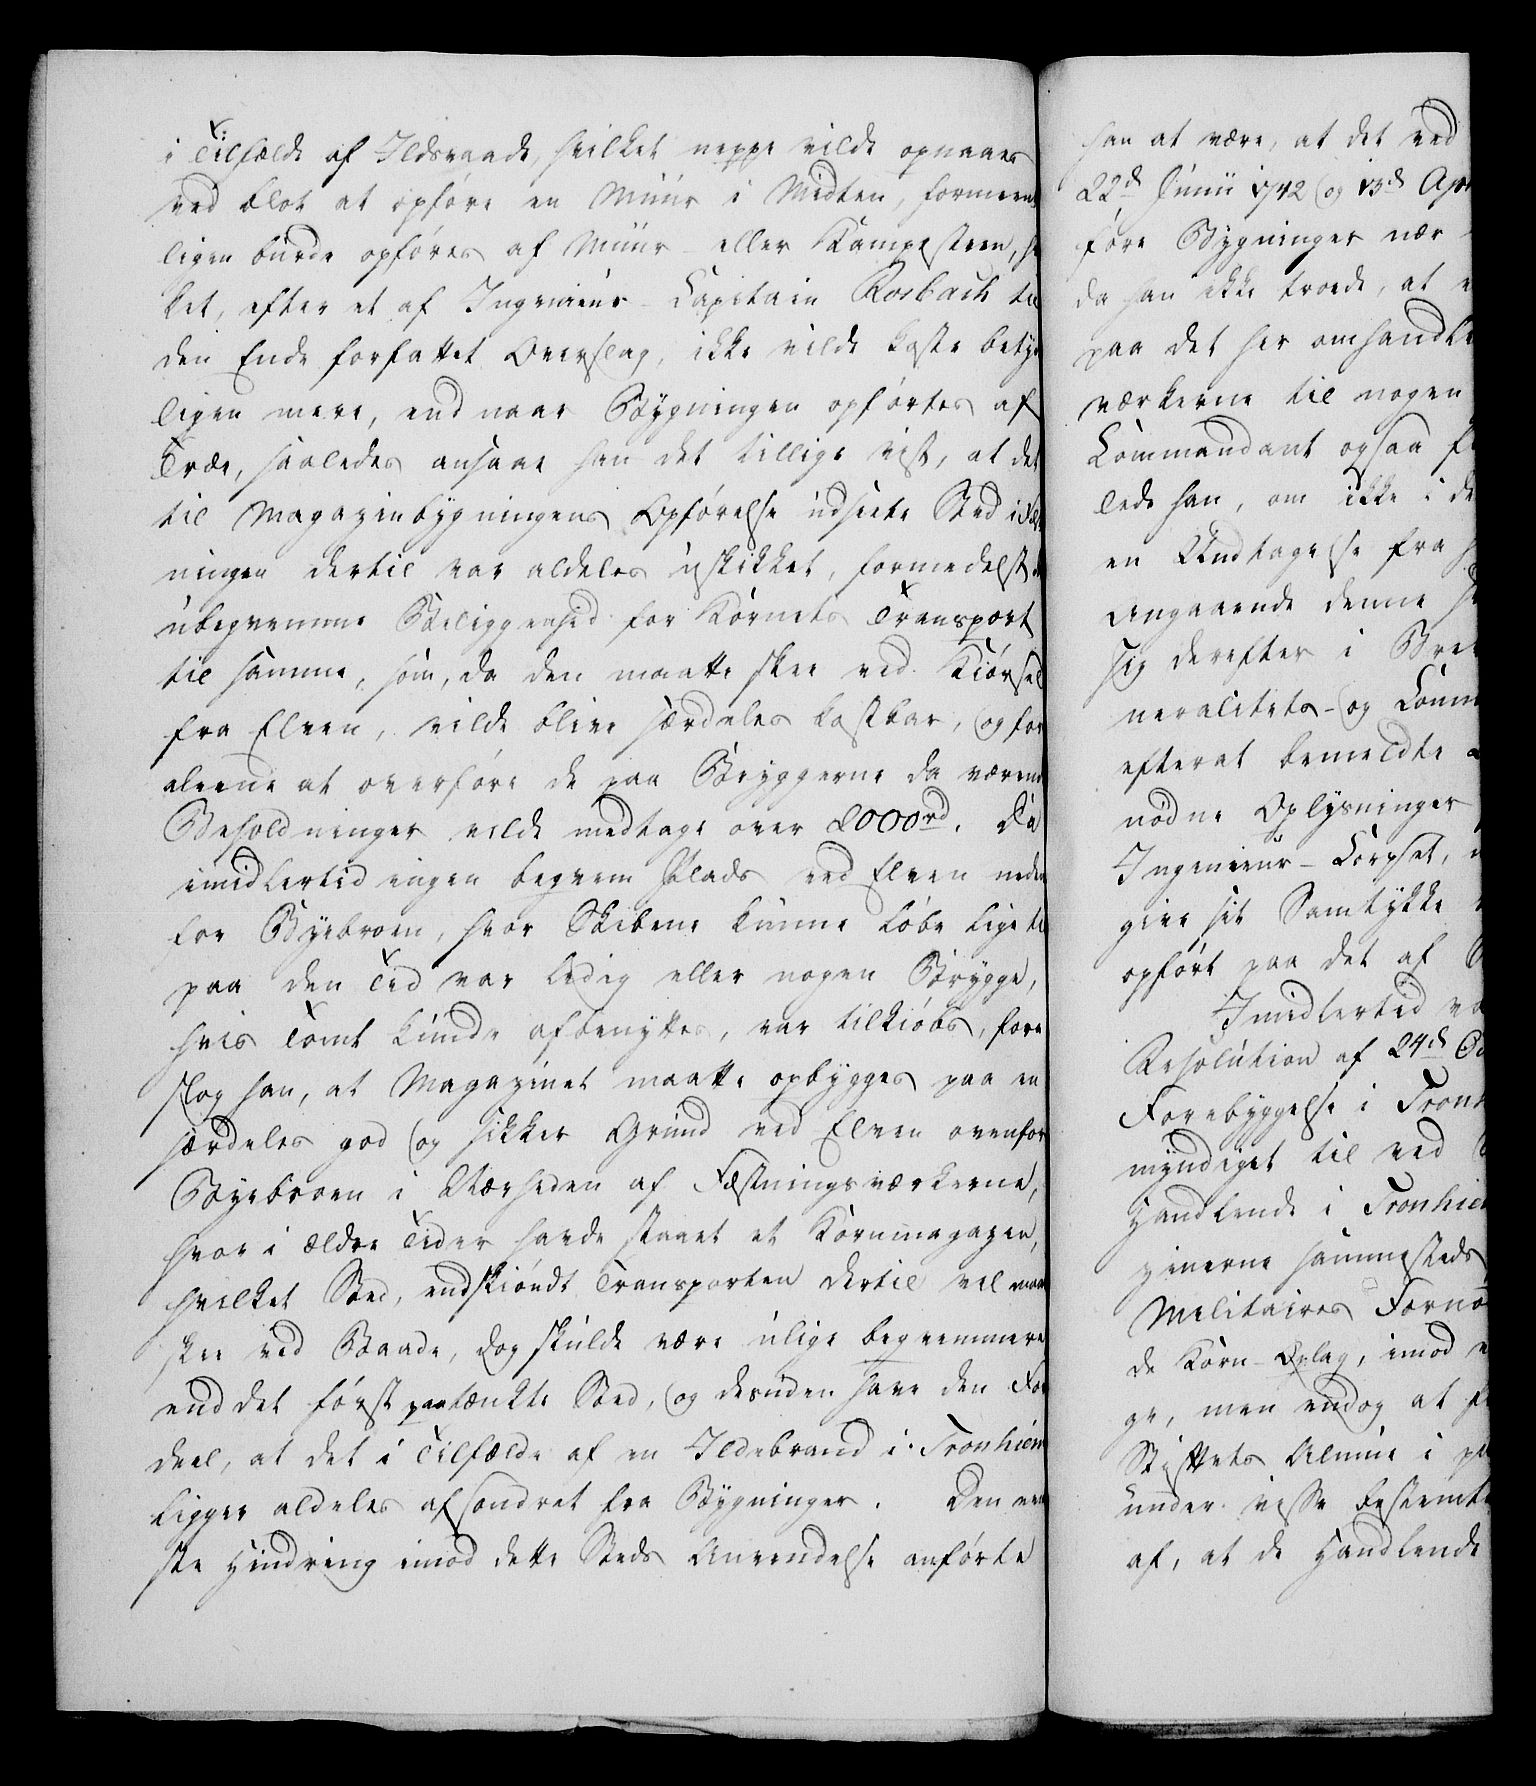 i Tilfælde af Ildsvaade, hvilket neppe vilde opnaaes
ved blot at opføre en Muur i Midten, formeent
ligen burde opføres af Muur- eller Kampesteen, h
ket, efter et af Ingenieur-Capitain Rosbach til
den Ende forfattet Overslag, ikke vilde koste betyd
ligen mere, end naar Bygningen opførtes af
Træe, saaledes ansaae han det tillige vist, at det
til Magazinbygningens Opførelse udseete Sted i Fæst
ningen dertil var aldeles uskikket, formedelst d
ubeqvemme Beliggenhed for Kornets Transport
til samme, som, da den maatte skee ved Kiørsel
fra Elven, vilde blive særdeles kostbar, og for
aleene at overføre de paa Bryggerne da værend
Beholdninger vilde medtage over 2000rd. Da
imidlertid ingen beqvem Plads ved Elven neden
for Byebroen, hvor Skibene kunne løbe lige til
paa den Tid var ledig eller nogen Brygge,
hvis Tomt kunde afbenyttes, var tilkiøbs, fore
slog han, at Magazinet maatte opbygges paa en
særdeles god og sikker Grund ved Elven ovenfor
Byebroen i Nærheden af Fæstningsværkerne,
hvor i ældre Tider havde staaet et Kornmagazin,
hvilket Sted, endskiøndt Transporten dertil vel maat
skee ved Baade, dog skulde være ulige beqvemmere
end det først paatænkte Sted, og desuden have den For
deel, at det i Tilfælde af en Ildebrand i Tronhiem
ligger aldeles afsondret fra Bygninger. Den een
ste Hindring imod dette Steds Anvendelse anførte
han at være, at det ved
22d Junii 1742 og 13d Apr
føre Bygninger nær
da han ikke troede, at
paa det her omhandle
værkerne til nogen
Commandant ogsaa f
lede han, om ikke i de
en Undtagelse fra
angaaende denne
sig derefter i Brev
neralitets- og Comm
efterat bemeldte
nødne Oplysninger
Ingenieur-Corpset,
give sit Samtykke
opført paa det af
Imidlertid va
Resolution af 24d Oc
Forebyggelse i Tronh
myndiget til ved
Handlende i Tronhiem
zinerne sammesteds
Militaires Fornø
de Korn-Oplag, imod
ge, men endog at
Stiftets Almue i
under visse bestemte
af, at de Handlende